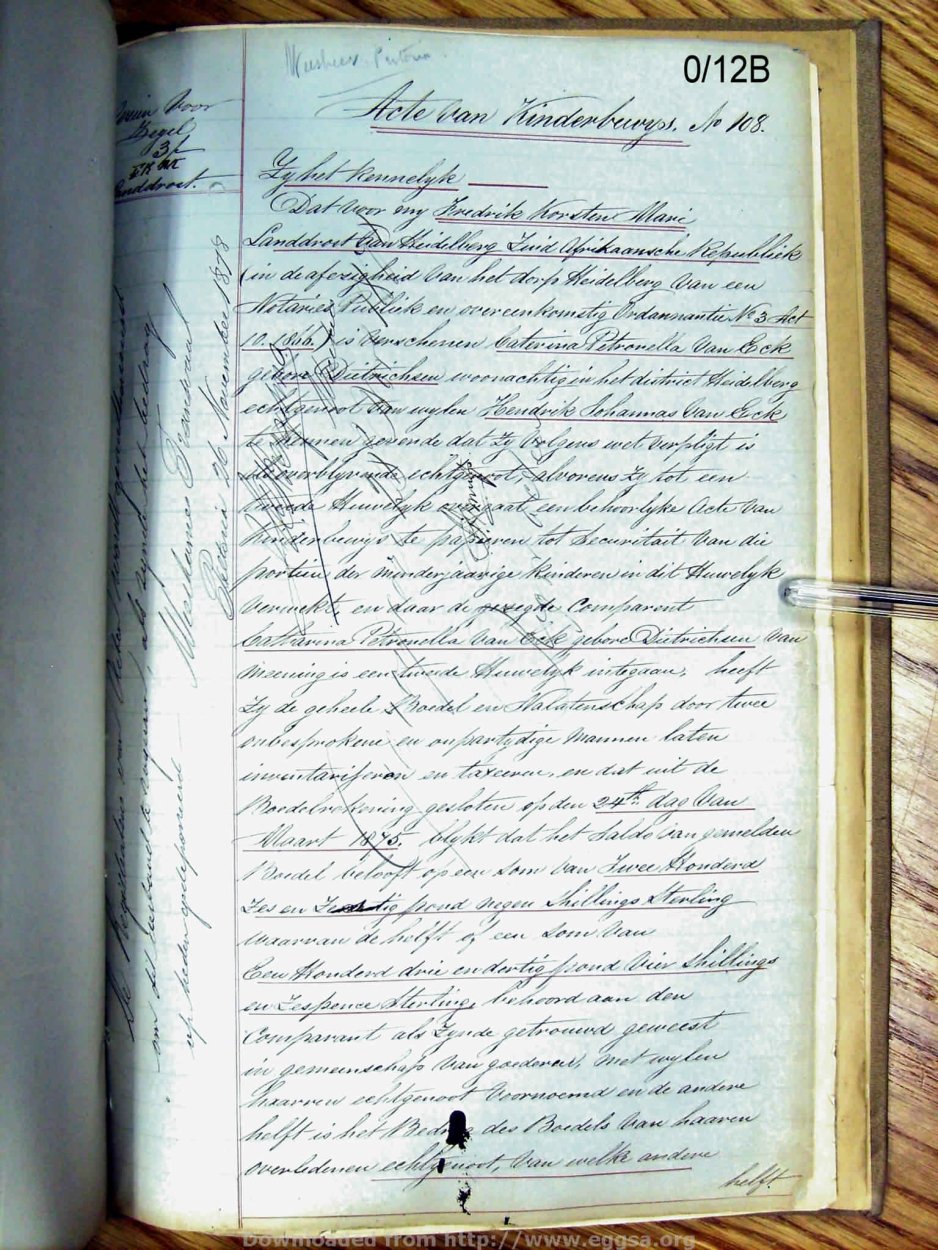 0/12B
Weesheer Pretoria
Acte Van Kinderbewys. No 108.
Voor
Zegel
3/
Landdrost.
Zy het Kennelyk
Dat voor my Fredrik Korsten Maré
Landdrost Van Heidelberg Zuid Afrikaansche Republiek
(in de afezigheid Van het dorp Heidelberg Van een
Notaries Publiek en overeenkomstig Ordannantie No 3 Act
10. 1866.) is Verschenen Caterina Petronella Van Eck
gebore Dietrichsen woonachtig in het district Heidelberg
echtgenoot Van wylen Hendrik Johannas Van Eeck
te kennen gevende dat zy Volgens wet Verpligt is
als overblyvende echtgenoot, alvorens zy tot een
tweede Huwelyk overgaat een behoorlyke Acte Van
Kinderbewys te passeren tot Securitait Van die
portien der minderjaarige Kinderen in dit Huwelyk
verwekt, en daar de gezegde Comparent
Catharina Petronella Van Eck gebore Dietrichsen Van
meening is een tweede Huwelyk integaan, heeft
Zy de geheele Boedel en Nalatenschap door twee
onbesprokene en onpartydige mannen laten
inventariseren en taxeeren, en dat uit de
Boedelrekening gesloten op den 24th dag Van
Maart 1875. blykt dat het Saldo van gemelden
Boedel beloopt op een Som Van Twee Honderd
Zes en Zestig pond negen Shillings Sterling
waarvan de helft of een Som Van
Een Honderd drie en dertig pond Vier Shillings
en Zespence Sterling, behoord aan den
Comparant als Zynde getrouwd geweest
in gemeenschap Van goederen, met wylen
haarren echtgenoot Voornoemd en de andere
helft is het Bedrag des Boedels Van haaren
overledenen echtgenoot, Van welke andere
helft
De Registrateur van Acten wordt geauthoriseerd
om dit verband te royeeren, als zynde het bedrag
op heden gedeponeerd
Weeskamer Transvaal
Pretoria 26 November 1878
Downloaded from http://www.eggsa.org